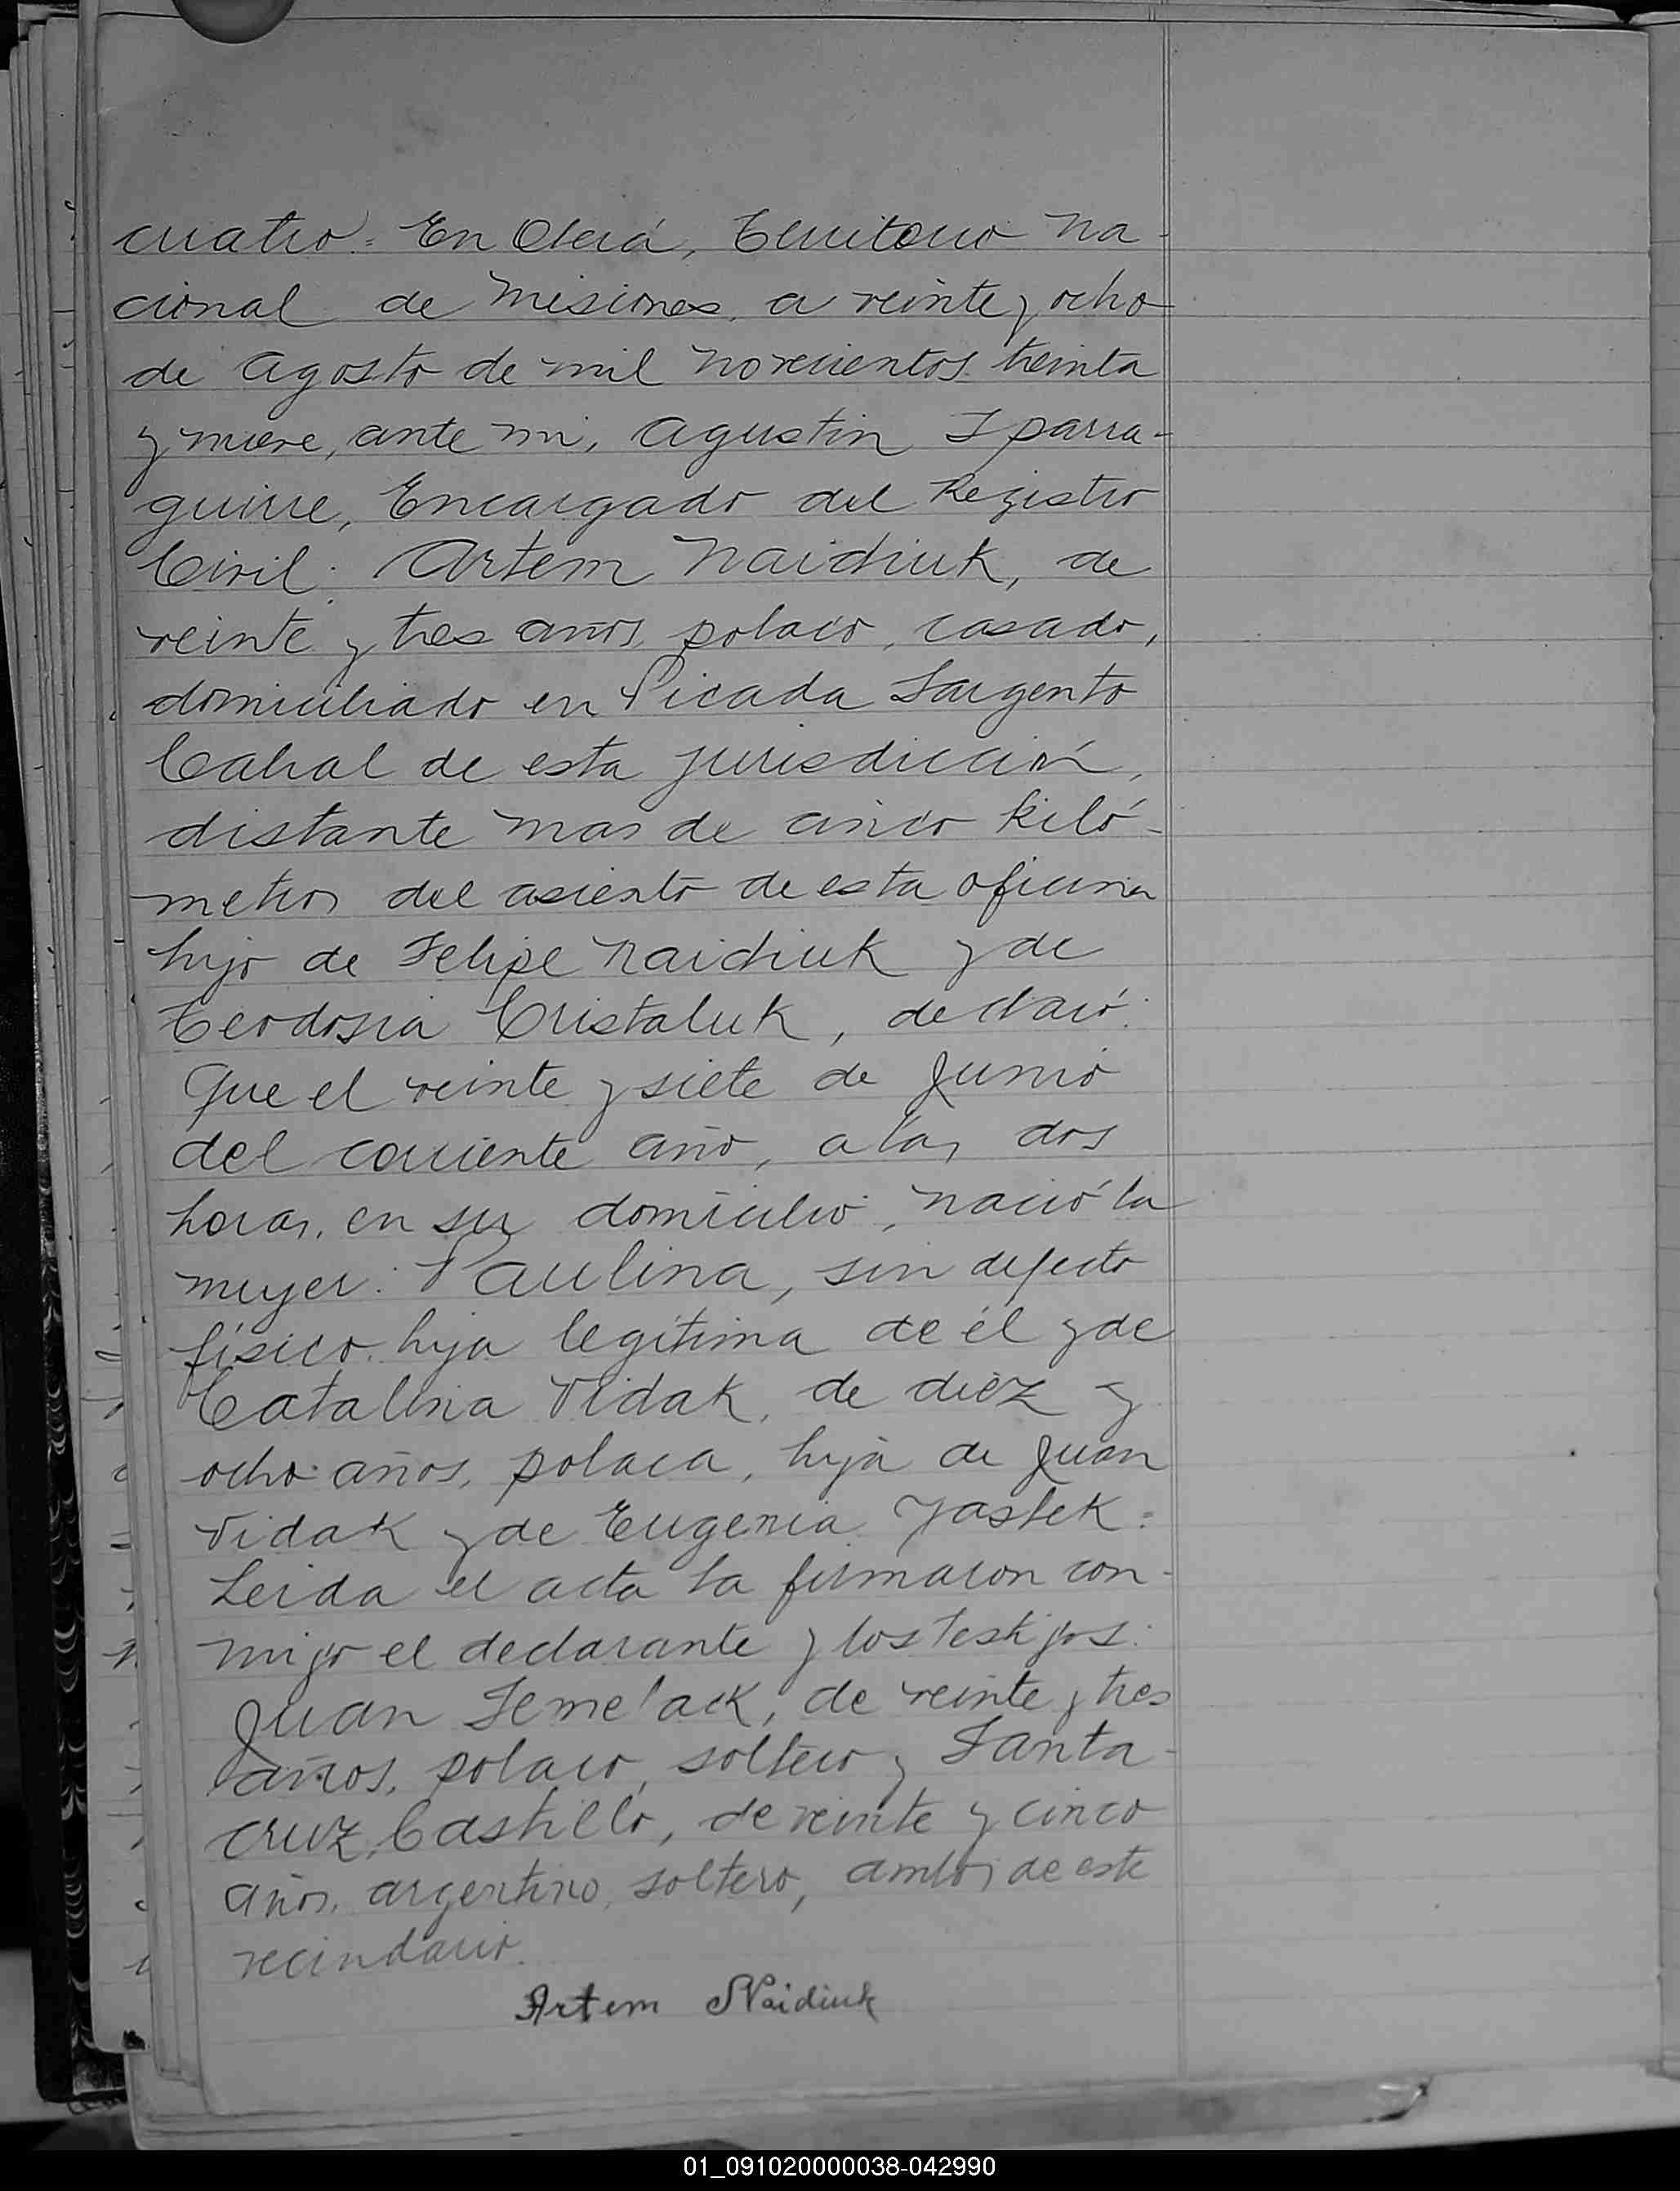 cuatro = En Oberá, Territorio Na-
cional de Misiones, a veinte y ocho
de Agosto de mil novecientos treinta
y nueve, ante mi, Agustin Iparra-
guirre, Encargado del Registro
Civil: Artem Naidiuk, de
veinte y tres años, polaco, casado,
domiciliado en Picada Sargento
Cabral de esta jurisdicción,
distante mas de cinco kiló-
metros del asiento de esta oficina
hijo de Felipe Naidiuk y de
Teodosia Cristaluk, declaró:
Que el veinte y siete de Junio
del corriente año, a las dos
horas, en su domicilio, nació la
mujer: Paulina, sin defecto
físico, hija legítima de él y de
Catalina Vidak, de diez y
ocho años, polaca, hija de Juan
Vidak y de Eugenia Jastek =
Leida el acta la firmaron con-
migo el declarante y los testigos:
Juan Semelack, de veinte y tres
años, polaco, soltero y Santa-
cruz Castillo, de veinte y cinco
años, argentino, soltero, ambos de este
vecindario.
Artem Naidiuk
01_091020000038-042990